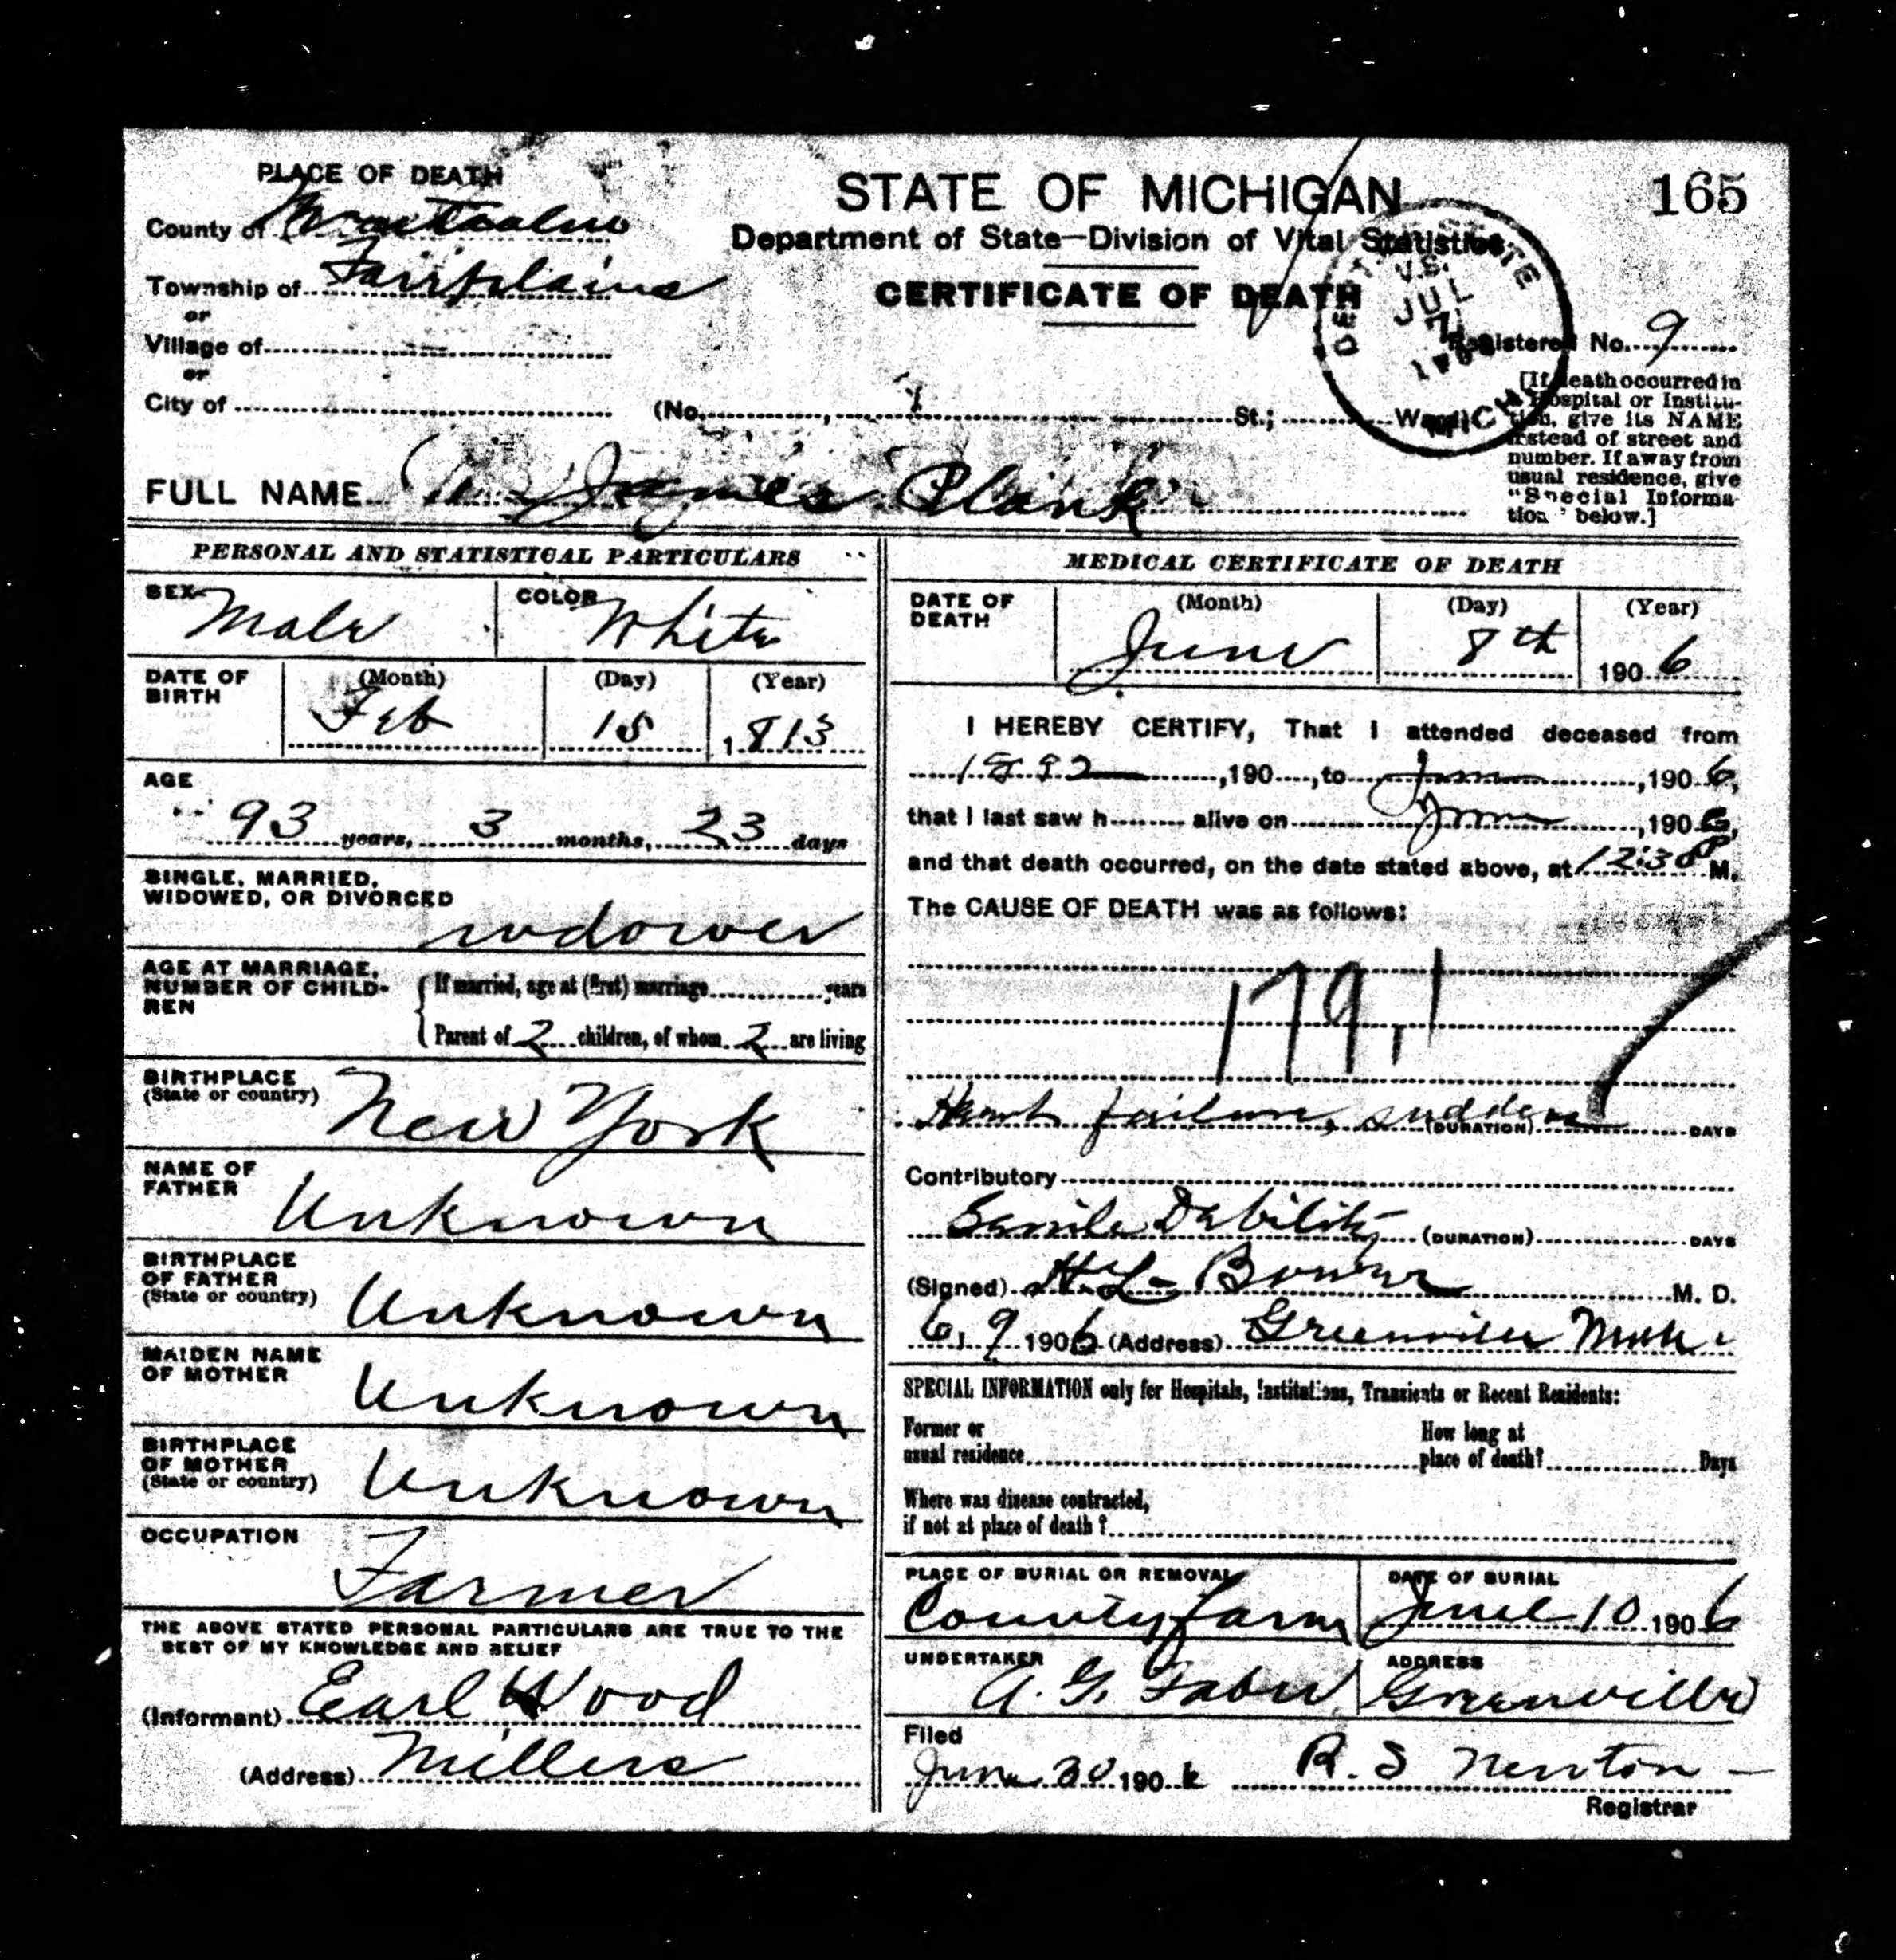 PLACE OF DEATH
County of Montcalm
Township of Fairplains
or
Village of
or
City of
STATE OF MICHIGAN
Department of State—Division of Vital Statistics
CERTIFICATE OF DEATH
165
DEPT. STATE
V.S.
JUL
7
MICH
Registered No. 9
(No. St.; Ward)
[If death occurred in
a Hospital or Institu-
tion, give its NAME
instead of street and
number. If away from
usual residence, give
"Special Informa-
tion" below.]
FULL NAME James Plank
PERSONAL AND STATISTICAL PARTICULARS
SEX Male
COLOR White
DATE OF BIRTH
(Month) (Day) (Year)
Feb 15 1813
AGE
93 years, 3 months, 23 days
SINGLE, MARRIED,
WIDOWED, OR DIVORCED
widower
AGE AT MARRIAGE,
NUMBER OF CHILD-
REN
If married, age at (first) marriage years
Parent of 2 children, of whom 2 are living
BIRTHPLACE
(State or country)
New York
NAME OF
FATHER
Unknown
BIRTHPLACE
OF FATHER
(State or country)
Unknown
MAIDEN NAME
OF MOTHER
Unknown
BIRTHPLACE
OF MOTHER
(State or country)
Unknown
OCCUPATION
Farmer
THE ABOVE STATED PERSONAL PARTICULARS ARE TRUE TO THE
BEST OF MY KNOWLEDGE AND BELIEF
(Informant) Earl Wood
(Address) Millers
MEDICAL CERTIFICATE OF DEATH
DATE OF
DEATH
(Month) (Day) (Year)
June 8th 1906
I HEREBY CERTIFY, That I attended deceased from
1892, 190, to June, 1906,
that I last saw h alive on June, 1906,
and that death occurred, on the date stated above, at 12:30 P M.
The CAUSE OF DEATH was as follows:
179.1
Heart failure, sudden (DURATION) DAYS
Contributory
Senile Debility (DURATION) DAYS
(Signed) H. L. Bower M. D.
6, 9 1906 (Address) Greenville Mich
SPECIAL INFORMATION only for Hospitals, Institutions, Transients or Recent Residents:
Former or
usual residence
How long at
place of death? Days
Where was disease contracted,
if not at place of death?
PLACE OF BURIAL OR REMOVAL
County farm
DATE OF BURIAL
June 10 1906
UNDERTAKER
A. G.
ADDRESS
Greenville
Filed
June 30 1906 R. S Newton
Registrar